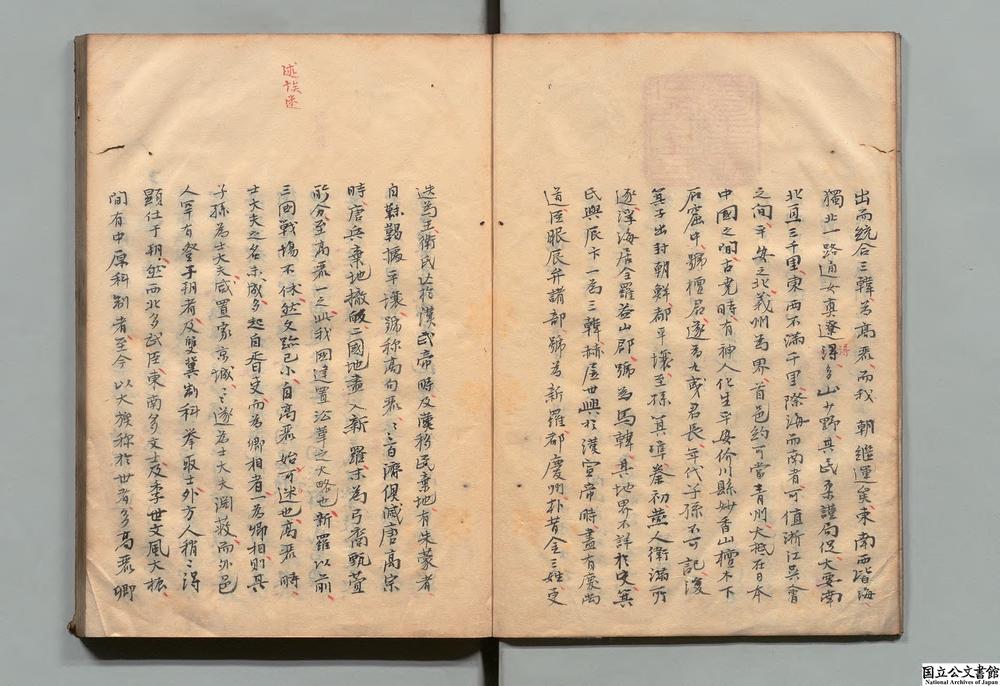 出而統合三韓爲高麗而我 朝継運矣東南西皆海
獨北一路通女真遼潯多山少野其民柔謹局促大要南
北亘三千里東西不滿千里際海而南者可值浙江吳會
之間平安之北義州爲界首邑約可當青州大抵在日本
中國之間古堯時有神人化生平安价川縣妙香山檀木下
石窟中號檀君遂爲九夷君長年代子孫不可記後
箕子出封朝鮮都平壤至孫箕準秦初燕人衛滿所
逐浮海居全羅益山郡號爲馬韓其地界不詳於史箕
氏與辰卞一爲三韓赫居世興於漢宣帝時盡有慶尚
道臣服辰弁諸部號爲新羅都慶州朴昔金三姓更
述誤迷
迭爲王衛氏亡於漢武帝時及漢移民棄地有朱蒙者
自靺鞨據平壤號称高句麗〻〻百濟俱滅唐高宗
時唐兵棄地撤皈二國地盡入新羅末爲弓裔甄萱
所分至高麗一之此我國建置沿革之大略也新羅以前
三國戰場不休然文跡已小自高麗始可迷也高麗時
士大夫之名未成多起自胥吏而爲卿相者一爲卿相則其
子孫爲士大夫咸置家京城〻〻遂爲士大夫淵藪而外邑
人罕有登于朝者及雙冀制科舉取士外方人稍〻得
顕仕于朝然西北多武臣東南多文士及季世文風大振
間有中原科制者至今以大族称於世者多高麗卿
国立公文書館
National Archives of Japan